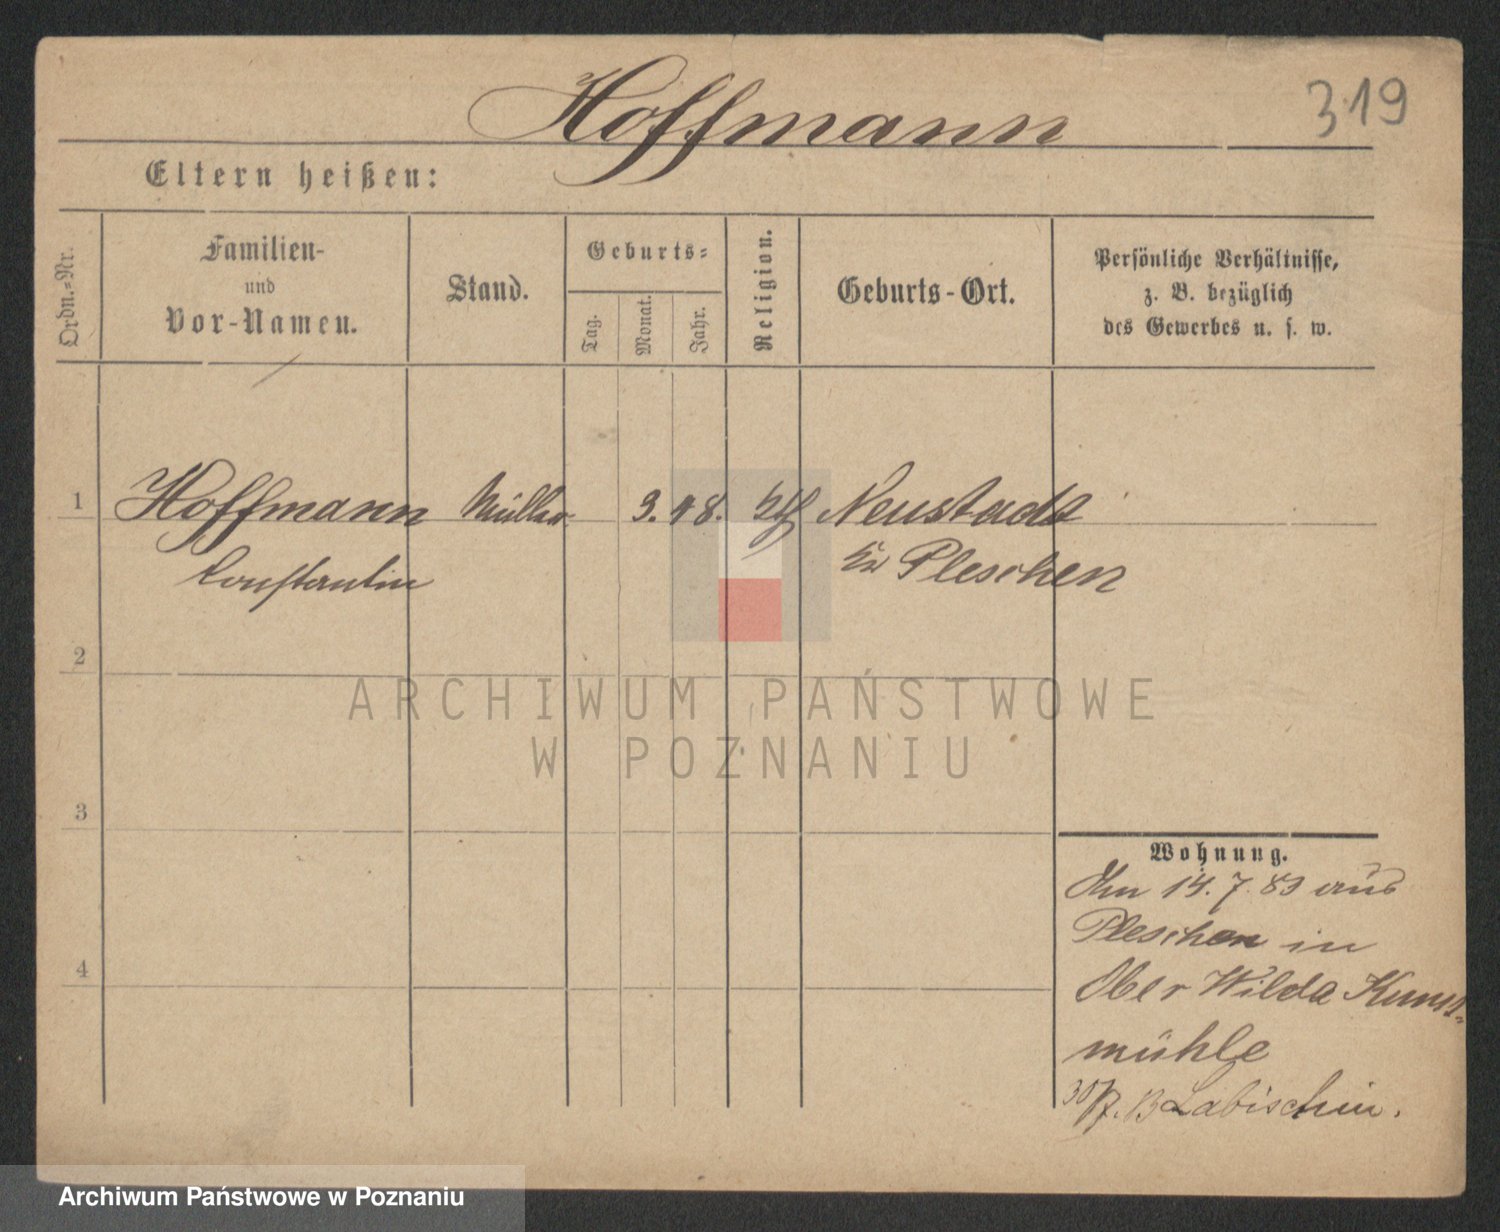 Hoffmann
319
Eltern heißen:
Ordn.=Nr.
Familien-
und
Vor-Namen.
Stand.
Geburts=
Tag.
Monat.
Jahr.
Religion.
Geburts-Ort.
Persönliche Verhältnisse,
z. B. bezüglich
des Gewerbes u. s. w.
1
Hoffmann Müller 3. 48. Neustadt
Constantin
Pleschen
2
ARCHIWUM PAŃSTWOWE
W POZNANIU
3
Wohnung.
Am 14. 7. 83 aus
Pleschen in
4
Ober Wilda Kunst-
mühle
30/7. Labischin.
Archiwum Państwowe w Poznaniu